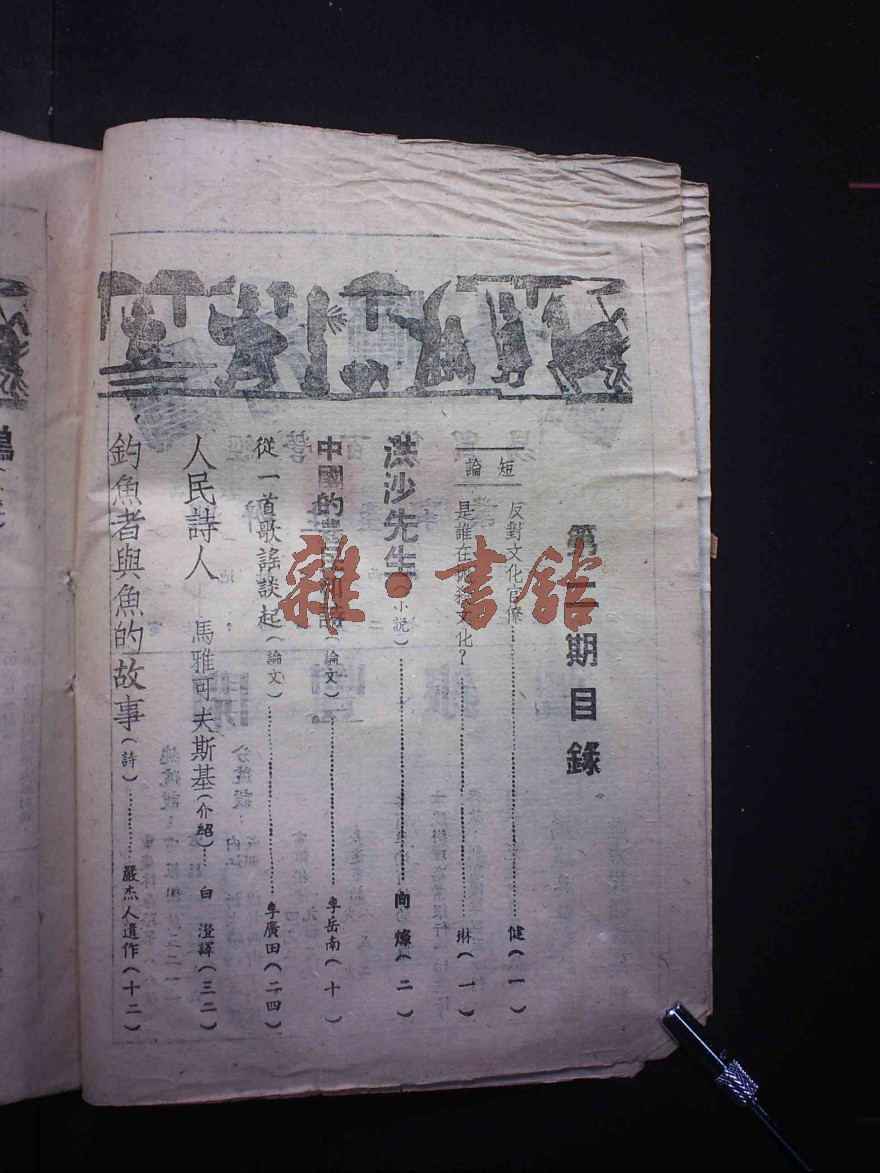 第二期目錄
短論
反對文化官僚……健（一）
是誰在扼殺文化？……琳（一）
洪沙先生（小説）……向（二）
中國的農民和詩（論文）……李岳南（十）
從一首歌謠談起（論文）……李廣田（二四）
人民詩人——馬雅可夫斯基（介紹）……白澄譯（三二）
釣魚者與魚的故事（詩）……嚴杰人遺作（十二）
雜·書館